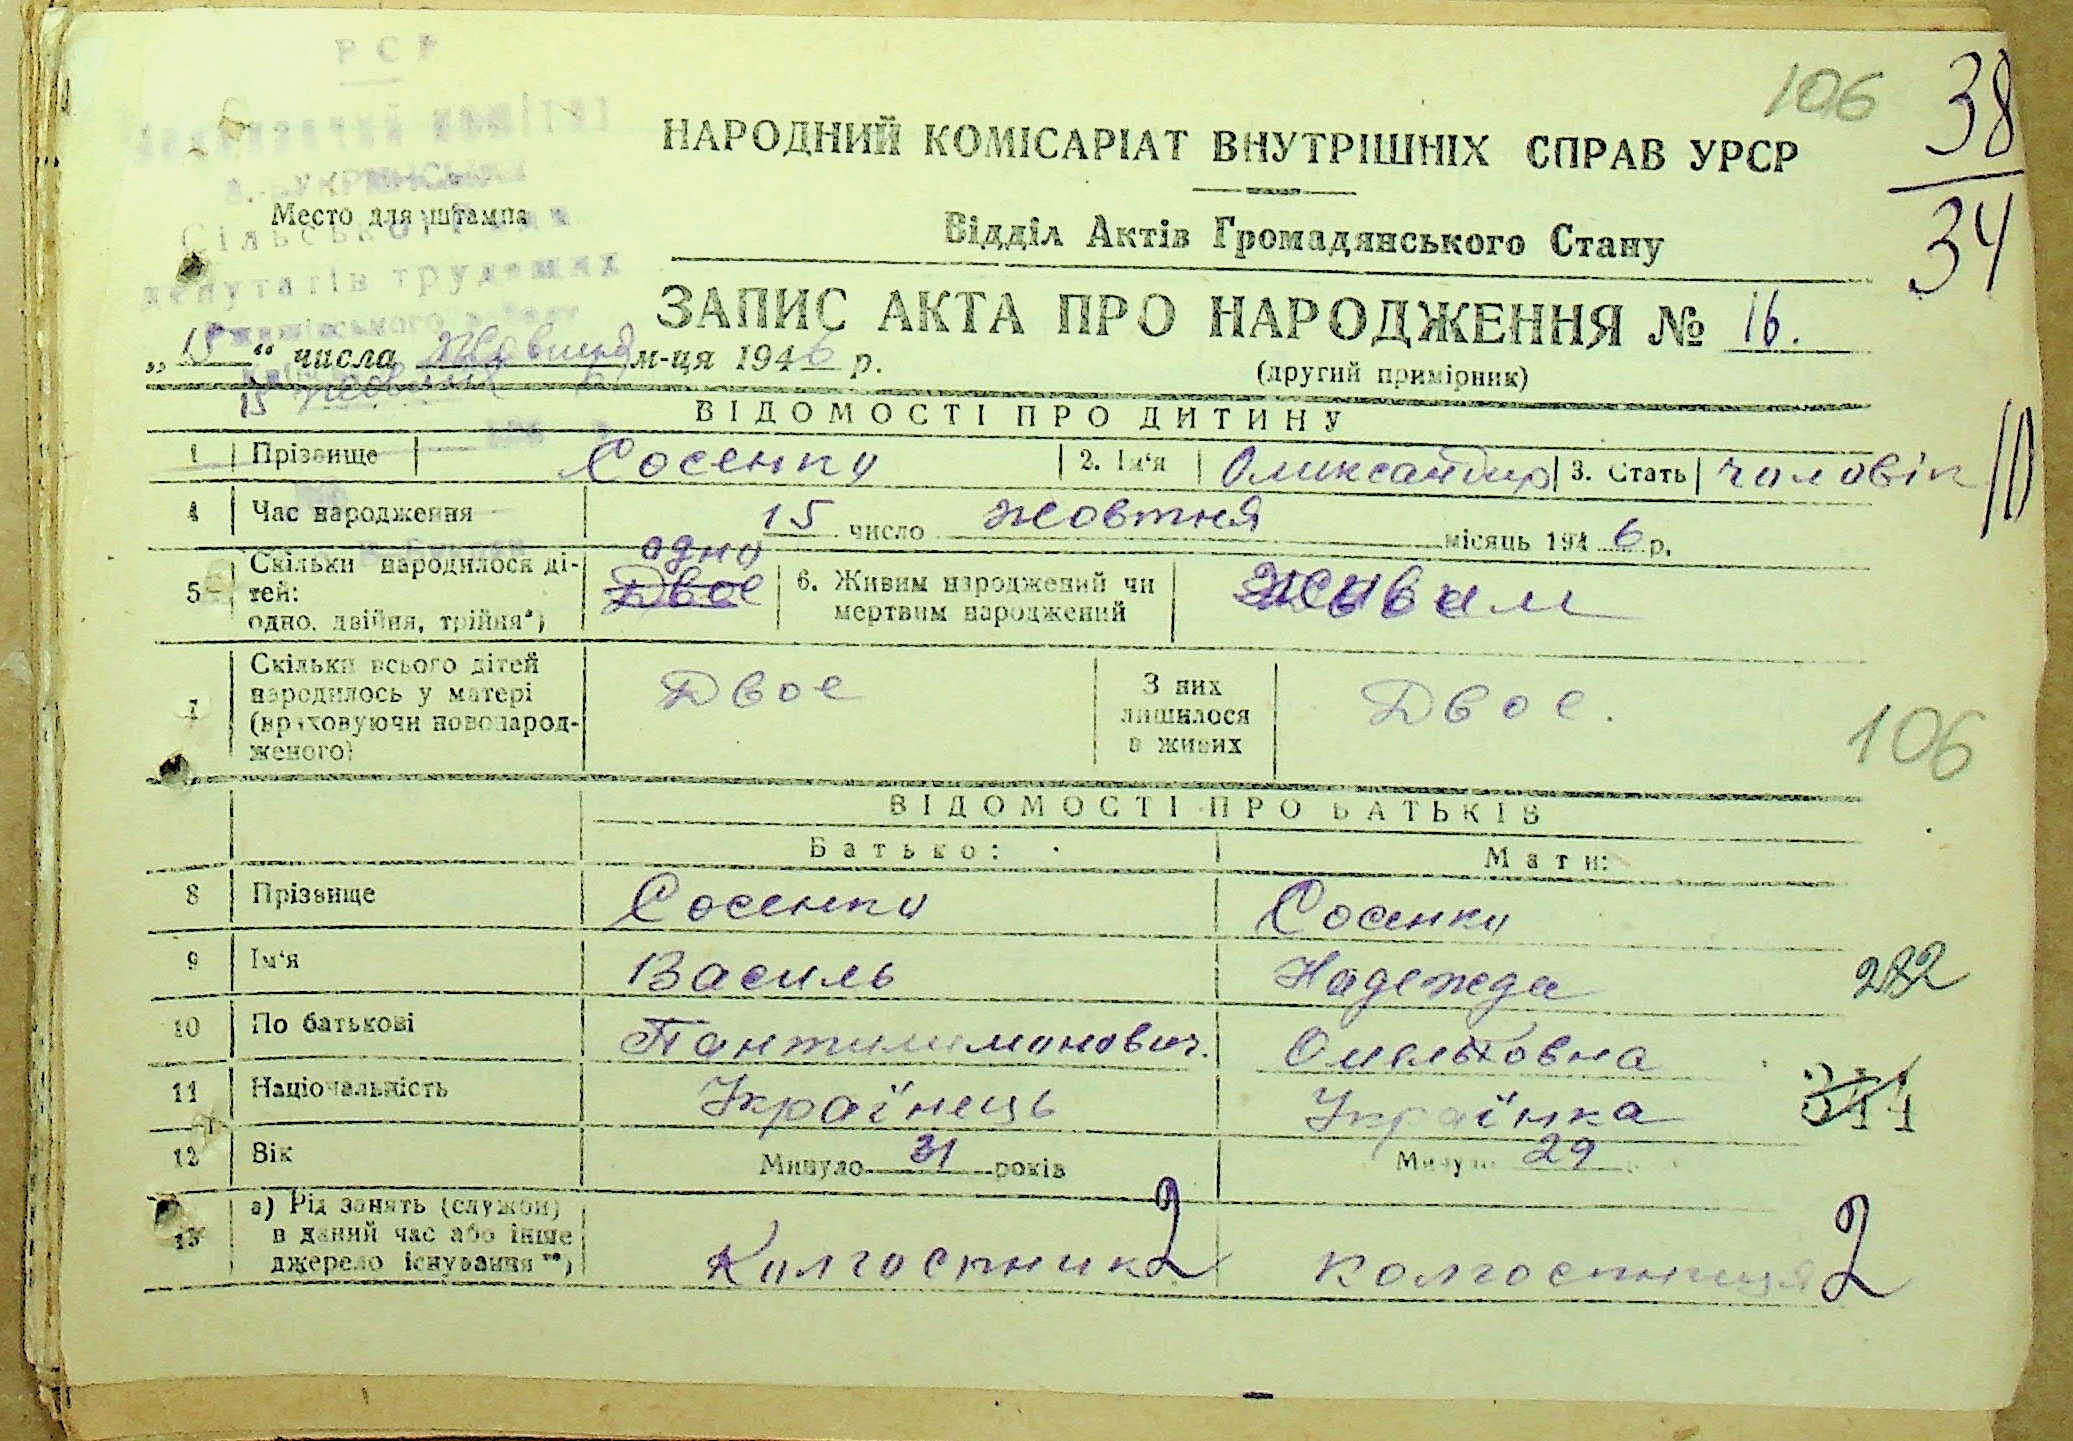 РСР
106
38
34
НАРОДНИЙ КОМІСАРІАТ ВНУТРІШНІХ СПРАВ УРСР
Место для штампа
Сільської Ради
депутатів трудящих
Відділ Актів Громадянського Стану
ЗАПИС АКТА ПРО НАРОДЖЕННЯ № 16.
„15" числа Жовтня м-ця 1946 р.
(другий примірник)
15
ВІДОМОСТІ ПРО ДИТИНУ
1 Прізвище Сосенко 2. Ім'я Олександр 3. Стать чоловік
10
4 Час народження 15 число жовтня місяць 1946 р.
5 Скільки народилося ді-
тей:
одно, двійня, трійня*)
одно
Двое
6. Живим народжений чи
мертвим народжений
живим
7 Скільки всього дітей
народилось у матері
(враховуючи новонарод-
женого)
Двое
З них
лишилося
в живих
Двое.
106
ВІДОМОСТІ ПРО БАТЬКІВ
Батько: Мати:
8 Прізвище Сосенко Сосенко
9 Ім'я Василь Надежда
282
10 По батькові Омельковна
11 Національність Українець Українка
344
12 Вік Минуло 31 років Минуло 29
13 а) Рід занять (служби)
в даний час або інше
джерело існування**)
Колгоспник 2 колгоспниця 2